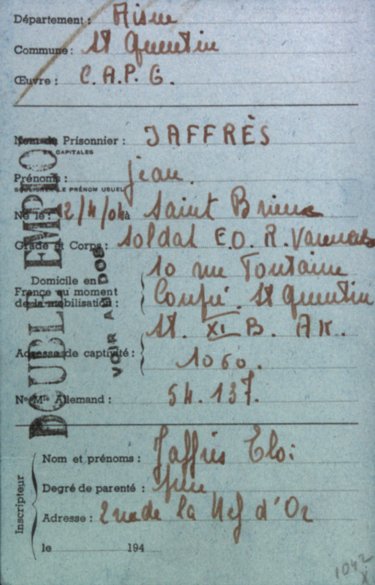 Département : Aisne
Commune : St Quentin
Œuvre : C.A.P.G.
Nom du Prisonnier : JAFFRÈS
EN CAPITALES
Prénoms : Jean.
SOULIGNER LE PRÉNOM USUEL
Né le : 12/4/04 à Saint Brieuc
Grade et Corps : Soldat E.O.R. Vannes
Domicile en France au moment de la mobilisation :
10 rue Fontaine
St Quentin
Adresse de captivité : St. XI B. AK.
1060.
No Mle Allemand : 54.137.
DOUBLE EMPLOI
VOIR AU DOS
Inscripteur
Nom et prénoms : Jaffrès Eloi
Degré de parenté : père
Adresse : 2 rue de la Nef d'Or
le 194
1042